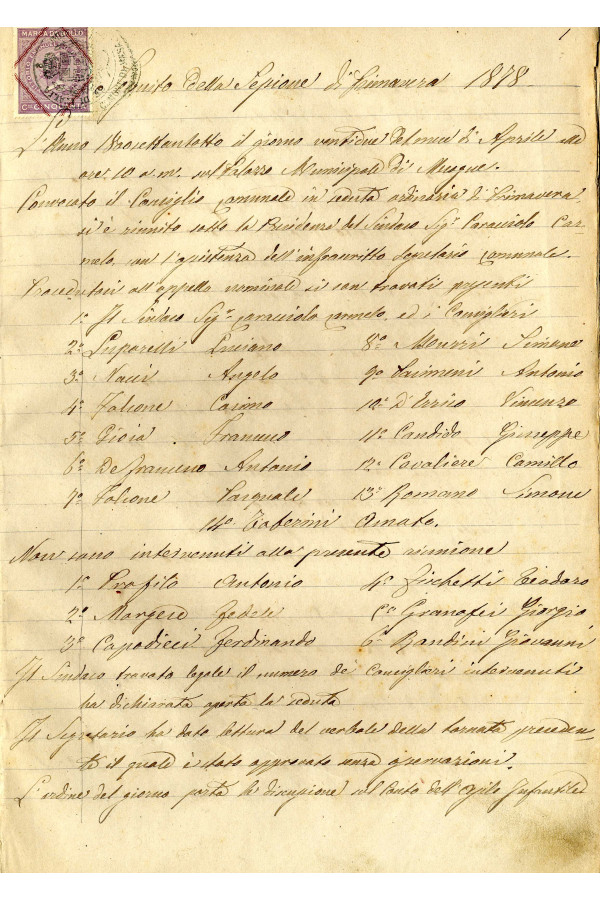 1
MARCA DA BOLLO
CMI CINQUANTA
della Sessione di Primavera 1878
L'Anno 1800settantotto il giorno ventidue del mese di Aprile alle
ore 10 a.m. sul Palazzo Municipale di Mesagne.
Convocato il Consiglio Comunale in seduta ordinaria di Primavera
si è riunito sotto la Presidenza del Sindaco Sigr Caracciolo Car-
melo, con l'assistenza dell'infrascritto Segretario Comunale.
Procedutosi all'appello nominale si son trovati presenti
1o Il Sindaco Sigr Caracciolo Carmelo, ed i Consiglieri
2o Luparelli Luciano 8o Simone
3o Nacci Angelo 9o Antonio
4o Falcone Cosimo 10o D'Errico Vincenzo
5o Gioia Franco 11o Candido Giuseppe
6o De Francesco Antonio 12o Cavaliere Camillo
7o Falcone Pasquale 13o Romano Simone
14o Zaferini Donato.
Non sono intervenuti alla presente riunione
1o Profilo Antonio 4o Fischetti Teodoro
2o Margese Fedele 5o Granafei Giorgio
3o Capodieci Ferdinando 6o Bandini Giovanni
Il Sindaco trovato legale il numero de' Consiglieri intervenuti
ha dichiarata aperta la seduta
Il Segretario ha dato lettura del verbale della tornata preceden-
te il quale è stato approvato senza osservazioni.
L'ordine del giorno porta la discussione sul Conto dell'Asilo Infantile